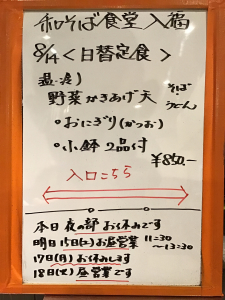 和そば食堂 入福
8/14 <日替定食>
温・冷)
野菜かきあげ天 そば
うどん
・おにぎり(かつお)
・小鉢2品付
¥850.-
入口こちら
本日 夜の部 お休みです
明日15日(土)お昼営業 11:30
〜13:30
17日(月)お休みします
18日(火)昼営業です